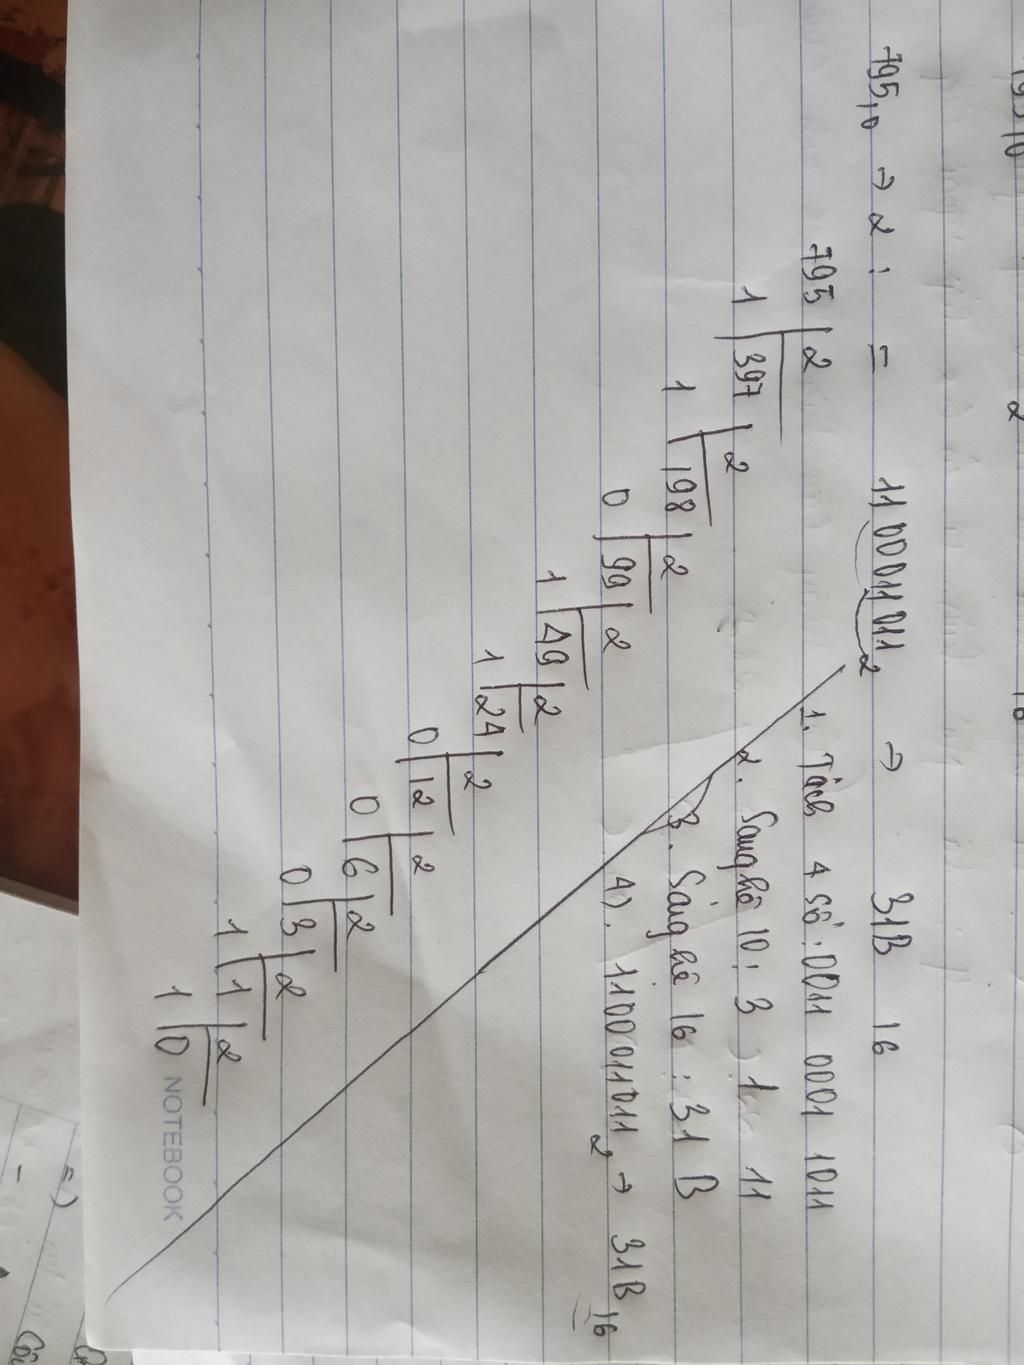 795₁₀ → 2 : = 1100011011₂ → 31B 16
795 2
1 397 2
1 198 2
0 99 2
1 49 2
1 24 2
0 12 2
0 6 2
0 3 2
1 1 2
1 0
1. Tách 4 số : 0011 0001 1011
2. Sang hệ 10 : 3 1 11
3. Sang hệ 16 : 31 B
4). 1100011011₂ → 31B₁₆
NOTEBOOK